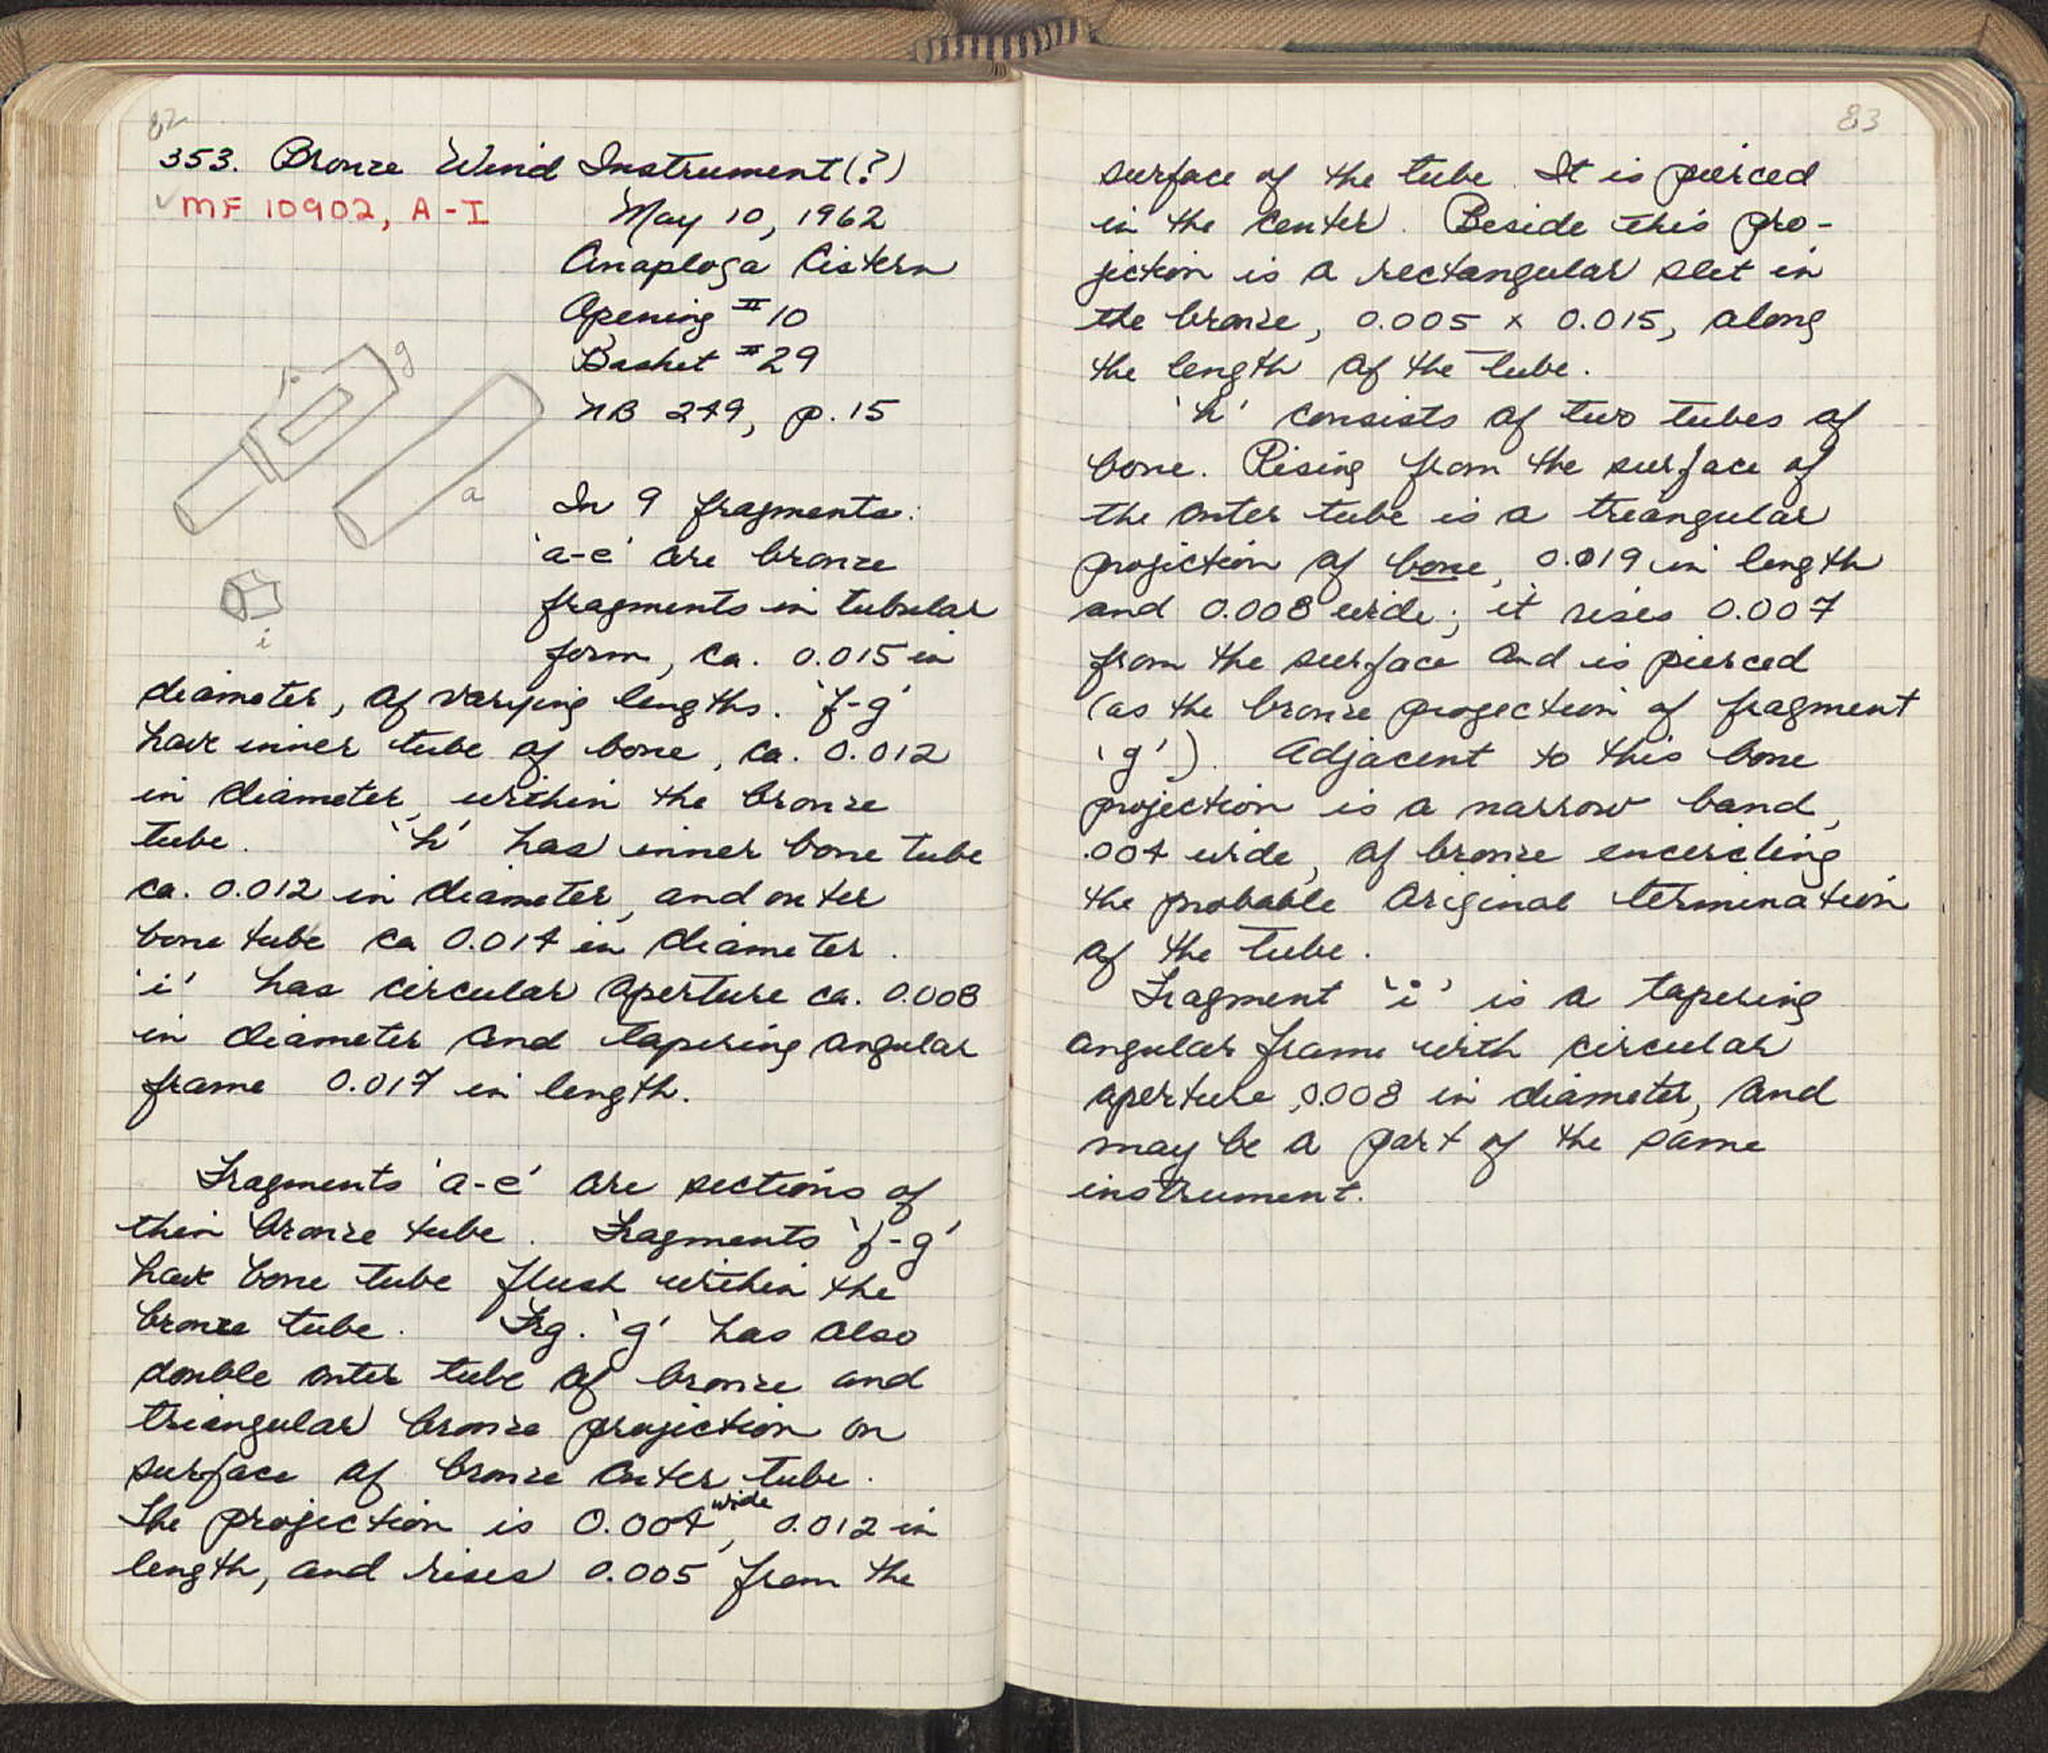 82
353. Bronze Wind Instrument (?)
✓ MF 10902, A-I
May 10, 1962
Anaploga Cistern
Opening #10
Basket #29
NB 249, p. 15
g
a
i
In 9 fragments:
'a-e' are bronze
fragments in tubular
form, ca. 0.015 in
diameter, of varying lengths. 'f-g'
have inner tube of bone, ca. 0.012
in diameter, within the bronze
tube. 'h' has inner bone tube
ca. 0.012 in diameter, and outer
bone tube ca 0.014 in diameter.
'i' has circular aperture ca. 0.008
in diameter and tapering angular
frame 0.017 in length.
Fragments 'a-e' are sections of
thin bronze tube. Fragments 'f-g'
have bone tube flush within the
bronze tube. Frg. 'g' has also
double outer tube of bronze and
triangular bronze projection on
surface of bronze outer tube.
The projection is 0.004 wide, 0.012 in
length, and rises 0.005 from the
83
surface of the tube. It is pierced
in the center. Beside this pro-
jection is a rectangular slit in
the bronze, 0.005 x 0.015, along
the length of the tube.
'h' consists of two tubes of
bone. Rising from the surface of
the outer tube is a triangular
projection of bone, 0.019 in length
and 0.008 wide; it rises 0.007
from the surface and is pierced
(as the bronze projection of fragment
'g'). Adjacent to this bone
projection is a narrow band,
.004 wide, of bronze encircling
the probable original termination
of the tube.
Fragment 'i' is a tapering
angular frame with circular
aperture, 0.008 in diameter, and
may be a part of the same
instrument.